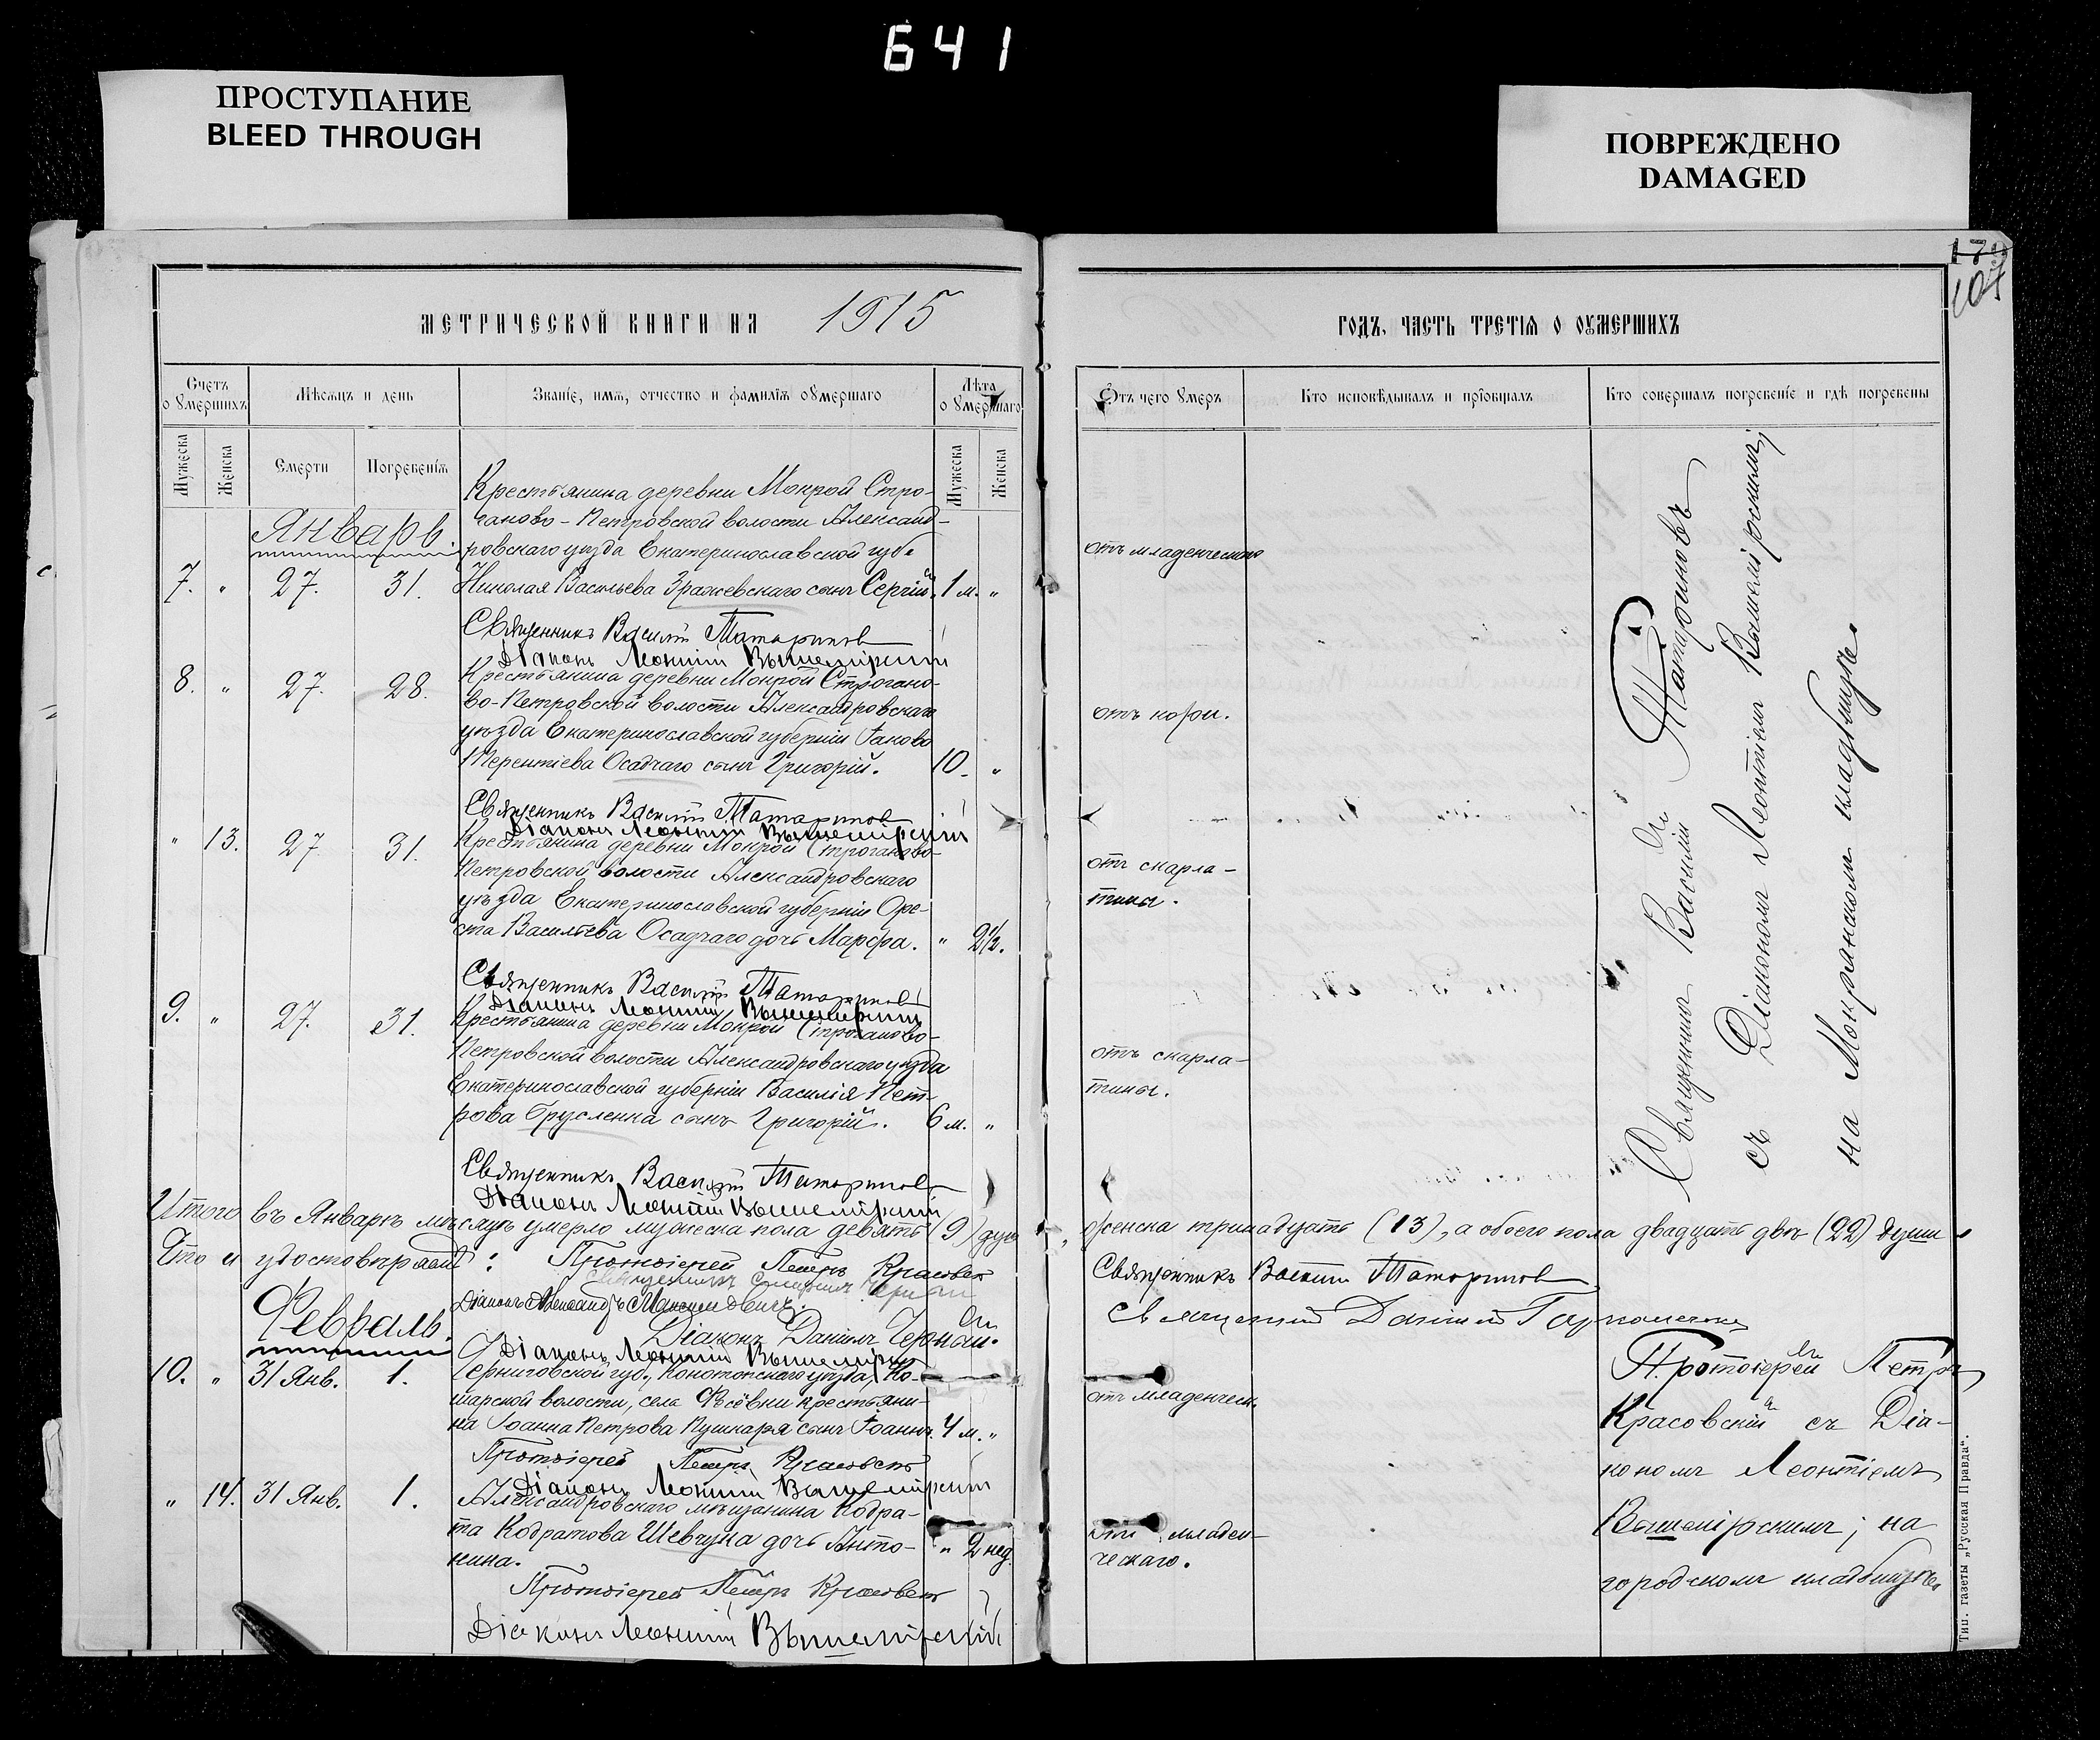 641
ПРОСТУПАНИЕ
BLEED THROUGH
ПОВРЕЖДЕНО
DAMAGED
МЕТРИЧЕСКОЙ КНИГИ НА 1915
Счетъ о умершихъ
Мѣсяцъ и день
Званіе, имя, отчество и фамилія умершаго
Лѣта о умершаго
Мужеска
Женска
Смерти
Погребенія
Мужеска
Женска
Январь.
Крестьянина деревни Мокрой Стро-
ганово-Петровской волости Александ-
ровскаго уѣзда Екатеринославской губ.
7. " 27. 31. Николая Васильева Зражевскаго сынъ Сергій. 1 м. "
Священникъ Василій Татариновъ
Діаконъ Леонтій Вышемірскій
8. " 27. 28. Крестьянина деревни Мокрой Строгано-
во-Петровской волости Александровскаго
уѣзда Екатеринославской губерніи Іакова
Терентіева Осадчаго сынъ Григорій. 10. "
Священникъ Василій Татариновъ
Діаконъ Леонтій Вышемірскій
" 13. 27 31. Крестьянина деревни Мокрой Строганово-
Петровской волости Александровскаго
уѣзда Екатеринославской губерніи Оре-
ста Васильева Осадчаго дочь Марфа. " 2½.
Священникъ Василій Татариновъ
Діаконъ Леонтій Вышемірскій
9. " 27. 31. Крестьянина деревни Мокрой Строганово-
Петровской волости Александровскаго уѣзда
Екатеринославской губерніи Василія Пет-
рова Брусленка сынъ Григорій. 6 м. "
Священникъ Василій Татариновъ
Діаконъ Леонтій Вышемірскій
Итого въ Январѣ мѣсяцѣ умерло мужеска пола девять (9) душ
Что и удостовѣряемъ: Протоіерей Петръ Красовскій
Діаконъ Александръ Максимовичъ.
Діаконъ Даніилъ Чернай.
Діаконъ Леонтій Вышемірскій
Февраль.
10. " 31 Янв. 1. Черниговской губ., Конотопскаго уѣзда,
марской волости, села крестьяни-
на Іоанна Петрова Пушкаря сынъ Іоаннъ. 4 м. "
Протоіерей Петръ Красовскій
Діаконъ Леонтій Вышемірскій
" 14. 31 Янв. 1. Александровскаго мѣщанина Кодра-
та Кодратова Шевчука дочь Анто-
нина. " 2 нед.
Протоіерей Петръ Красовскій
Діаконъ Леонтій Вышемірскій
ГОДЪ, ЧАСТЬ ТРЕТІЯ О ОУМЕРШИХЪ
Отъ чего умеръ
Кто исповѣдывалъ и пріобщалъ
Кто совершалъ погребеніе и гдѣ погребены
отъ младенческаго
отъ кори.
отъ скарла-
тины.
отъ скарла-
тины.
Священникъ Василій Татариновъ
съ Діакономъ Леонтіемъ Вышемірскимъ;
на Мокрянскомъ кладбищѣ.
женска тринадцать (13), а обоего пола двадцать двѣ (22) души
Священникъ Василій Татариновъ
Священникъ Даніилъ
отъ младенческ.
Протоіерей Петръ
Красовскій съ Діа-
кономъ Леонтіемъ
Вышемірскимъ; на
городскомъ кладбищѣ.
отъ младен-
ческаго.
Тип. газеты „Русская Правда".